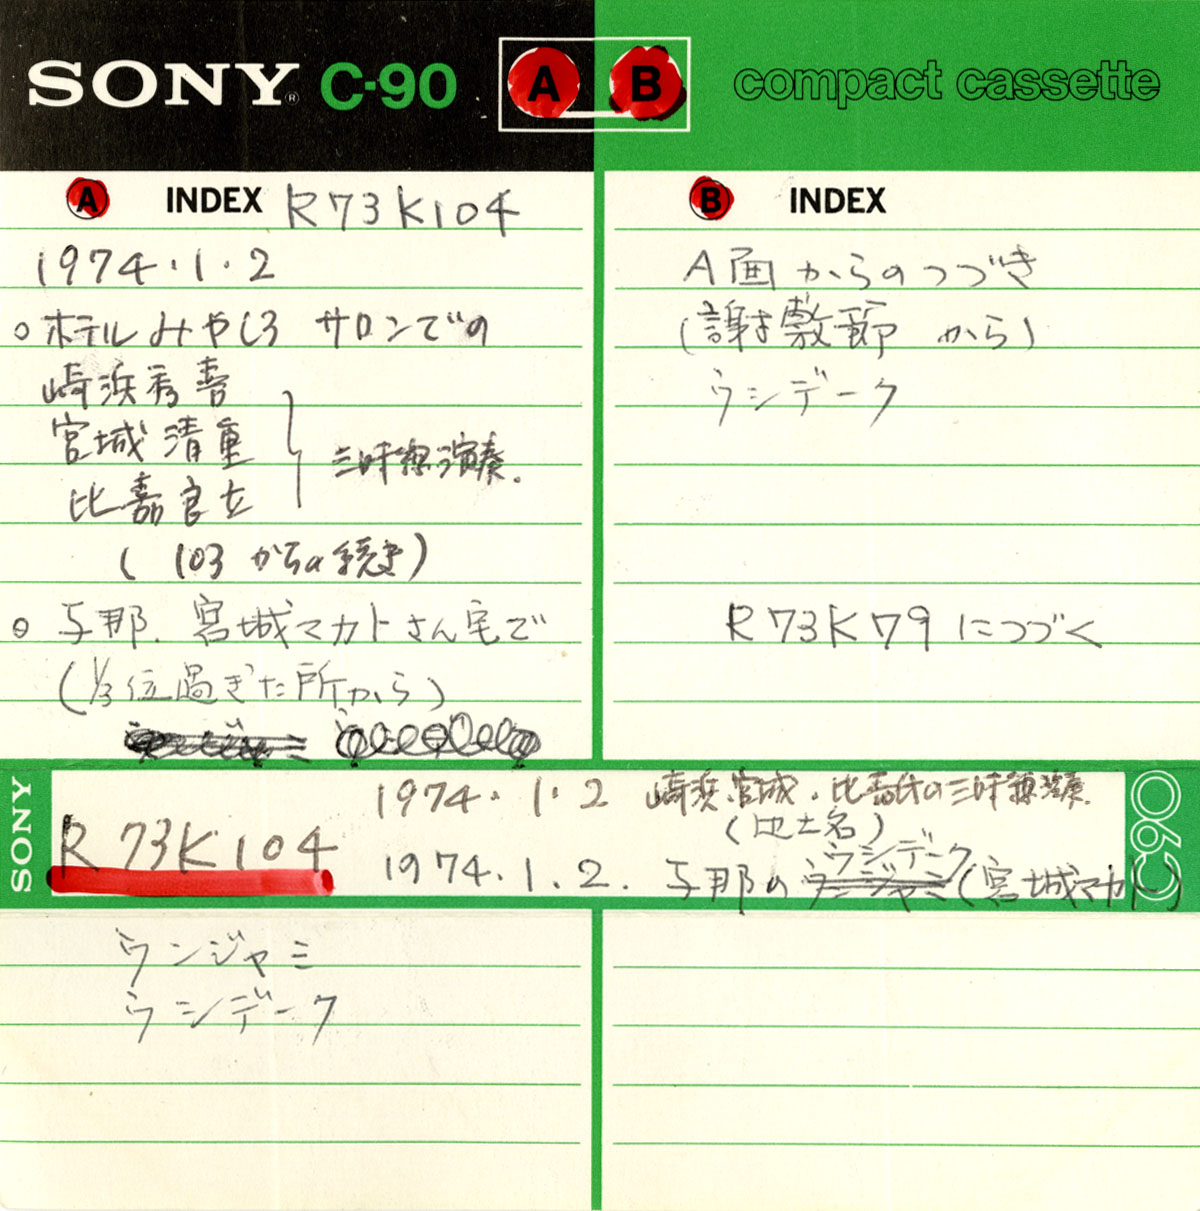 SONY® C-90 A B compact cassette
A INDEX R73K104
1974.1.2
○ホテルみやしろ サロンでの
崎浜秀喜
宮城清重
比嘉良立
三味線演奏.
(103からの続き)
○与那.宮城マカトさん宅で
(1/3位過ぎた所から)
B INDEX
A面からのつづき
(謝敷節から)
ウシデーク
R73K79につづく
SONY
R73K104
1974.1.2 崎浜.宮城.比嘉氏の三味線演奏.
1974.1.2. 与那のウシデーク(宮城マカト)
C90
ウンジャミ
ウシデーク